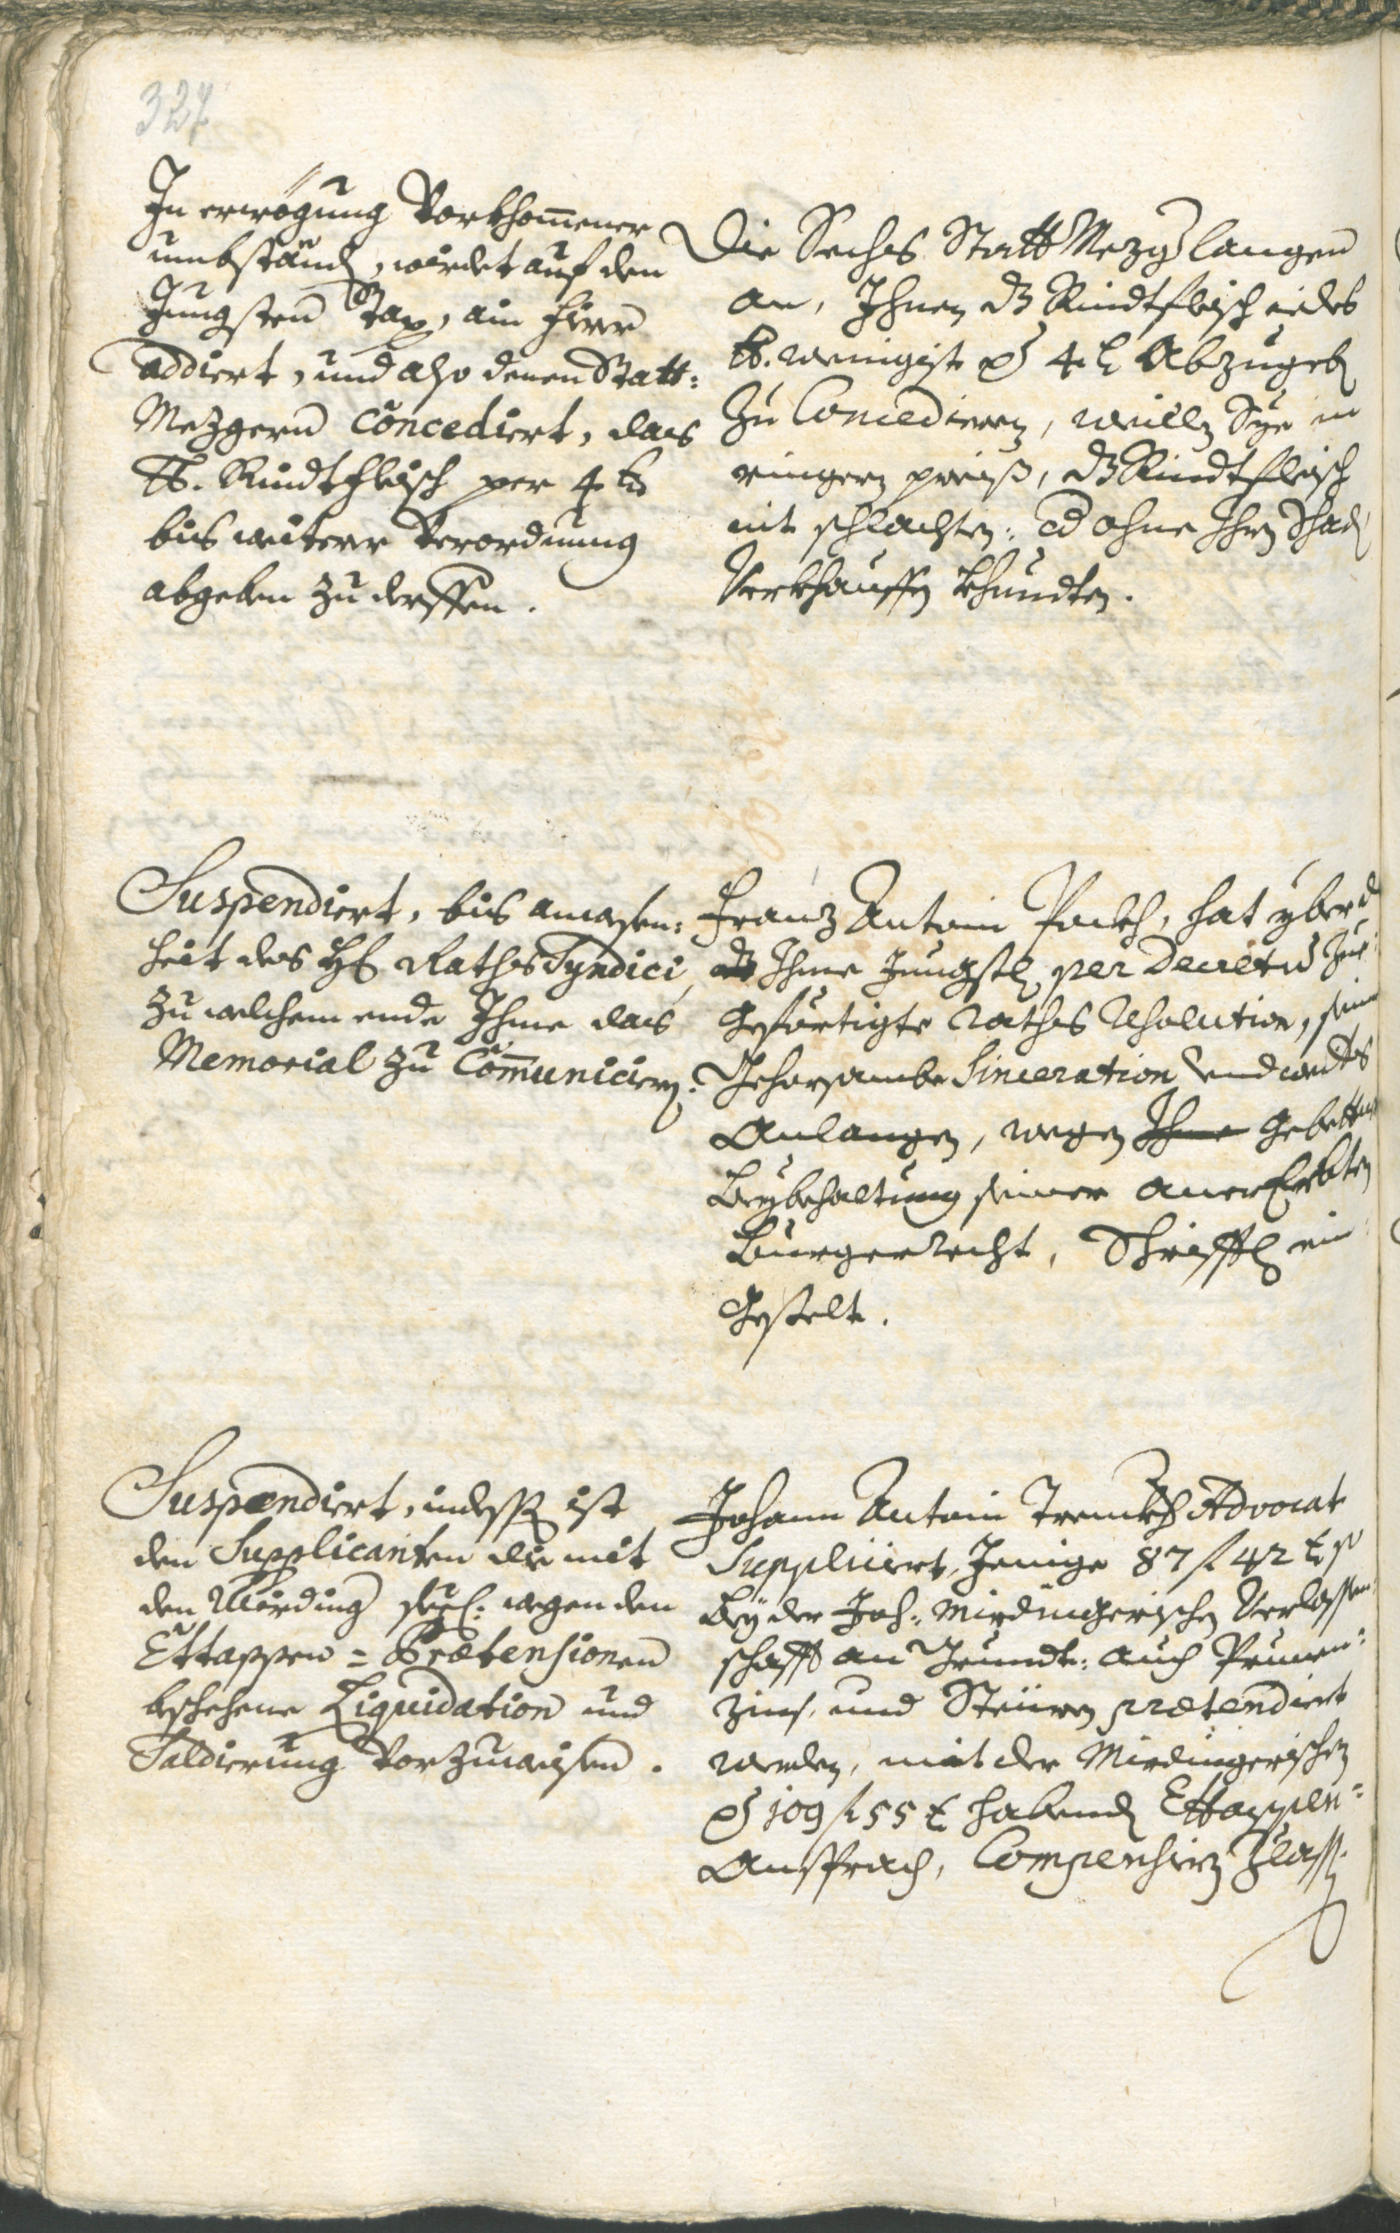 327
In erwögung Vorkhom̄ener
umbständ, würdet auf den
Jungsten Tax, ain Fierer
addiert, und also denen Statt-
Mezgern concediert, das
℔. Rindtfleisch per 4 kr
bis weiterer Verordnung
abgeben zu derffen.
Die Sechs Statt Mezger langen
an, Ihnen dz Rindtfleisch iedes
℔. wenigist p 4 kr Abzugeben
zu Concedieren, weillen Sye in
ringern preiß, dz Rindtfleisch
nit schlachten: od ohne Ihren Schad
Verkhauffen khundten.
Suspendiert, bis anwesen-
heit des H Raths Syndici,
zu welchem ende Ihme das
Memorial zu Com̄uniciern.
Franz Antoni Pockh, hat yber d
Ihme Jungstl per Decretū Zue-
Geförtigte Raths Resolution, sein
Gehorsambe Sinceration und weiters
Anlangen, wegen Ihme Gebettner
Beybehaltung seiner Anererbten
Burgerrecht, Schrifftl ein-
Gestelt.
Suspendiert, indessen ist
den Supplicanten die mit
den Mirding seel: wegen den
Ettappen = Prætensionen
beschehene Liquidation und
Saldierung Vorzuweisen.
Johann Antoni Trenckh Advocat
Suppliciert, Jenige 87 f 42 kr so
bey der Joh: Mirdingerischen Verlassen-
schafft an Grundt: auch Prunen-
zins, und Steüren prætendiert
werden, mit der Mirdingerischen
p 109 f 55 kr habend Ettappen-
Ansprach, Compensiern Zlassen